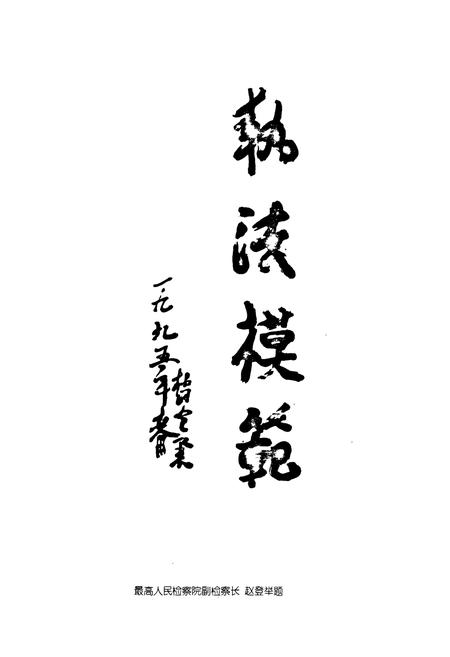 執法模範
一九九五年春
最高人民检察院副检察长 赵登举题